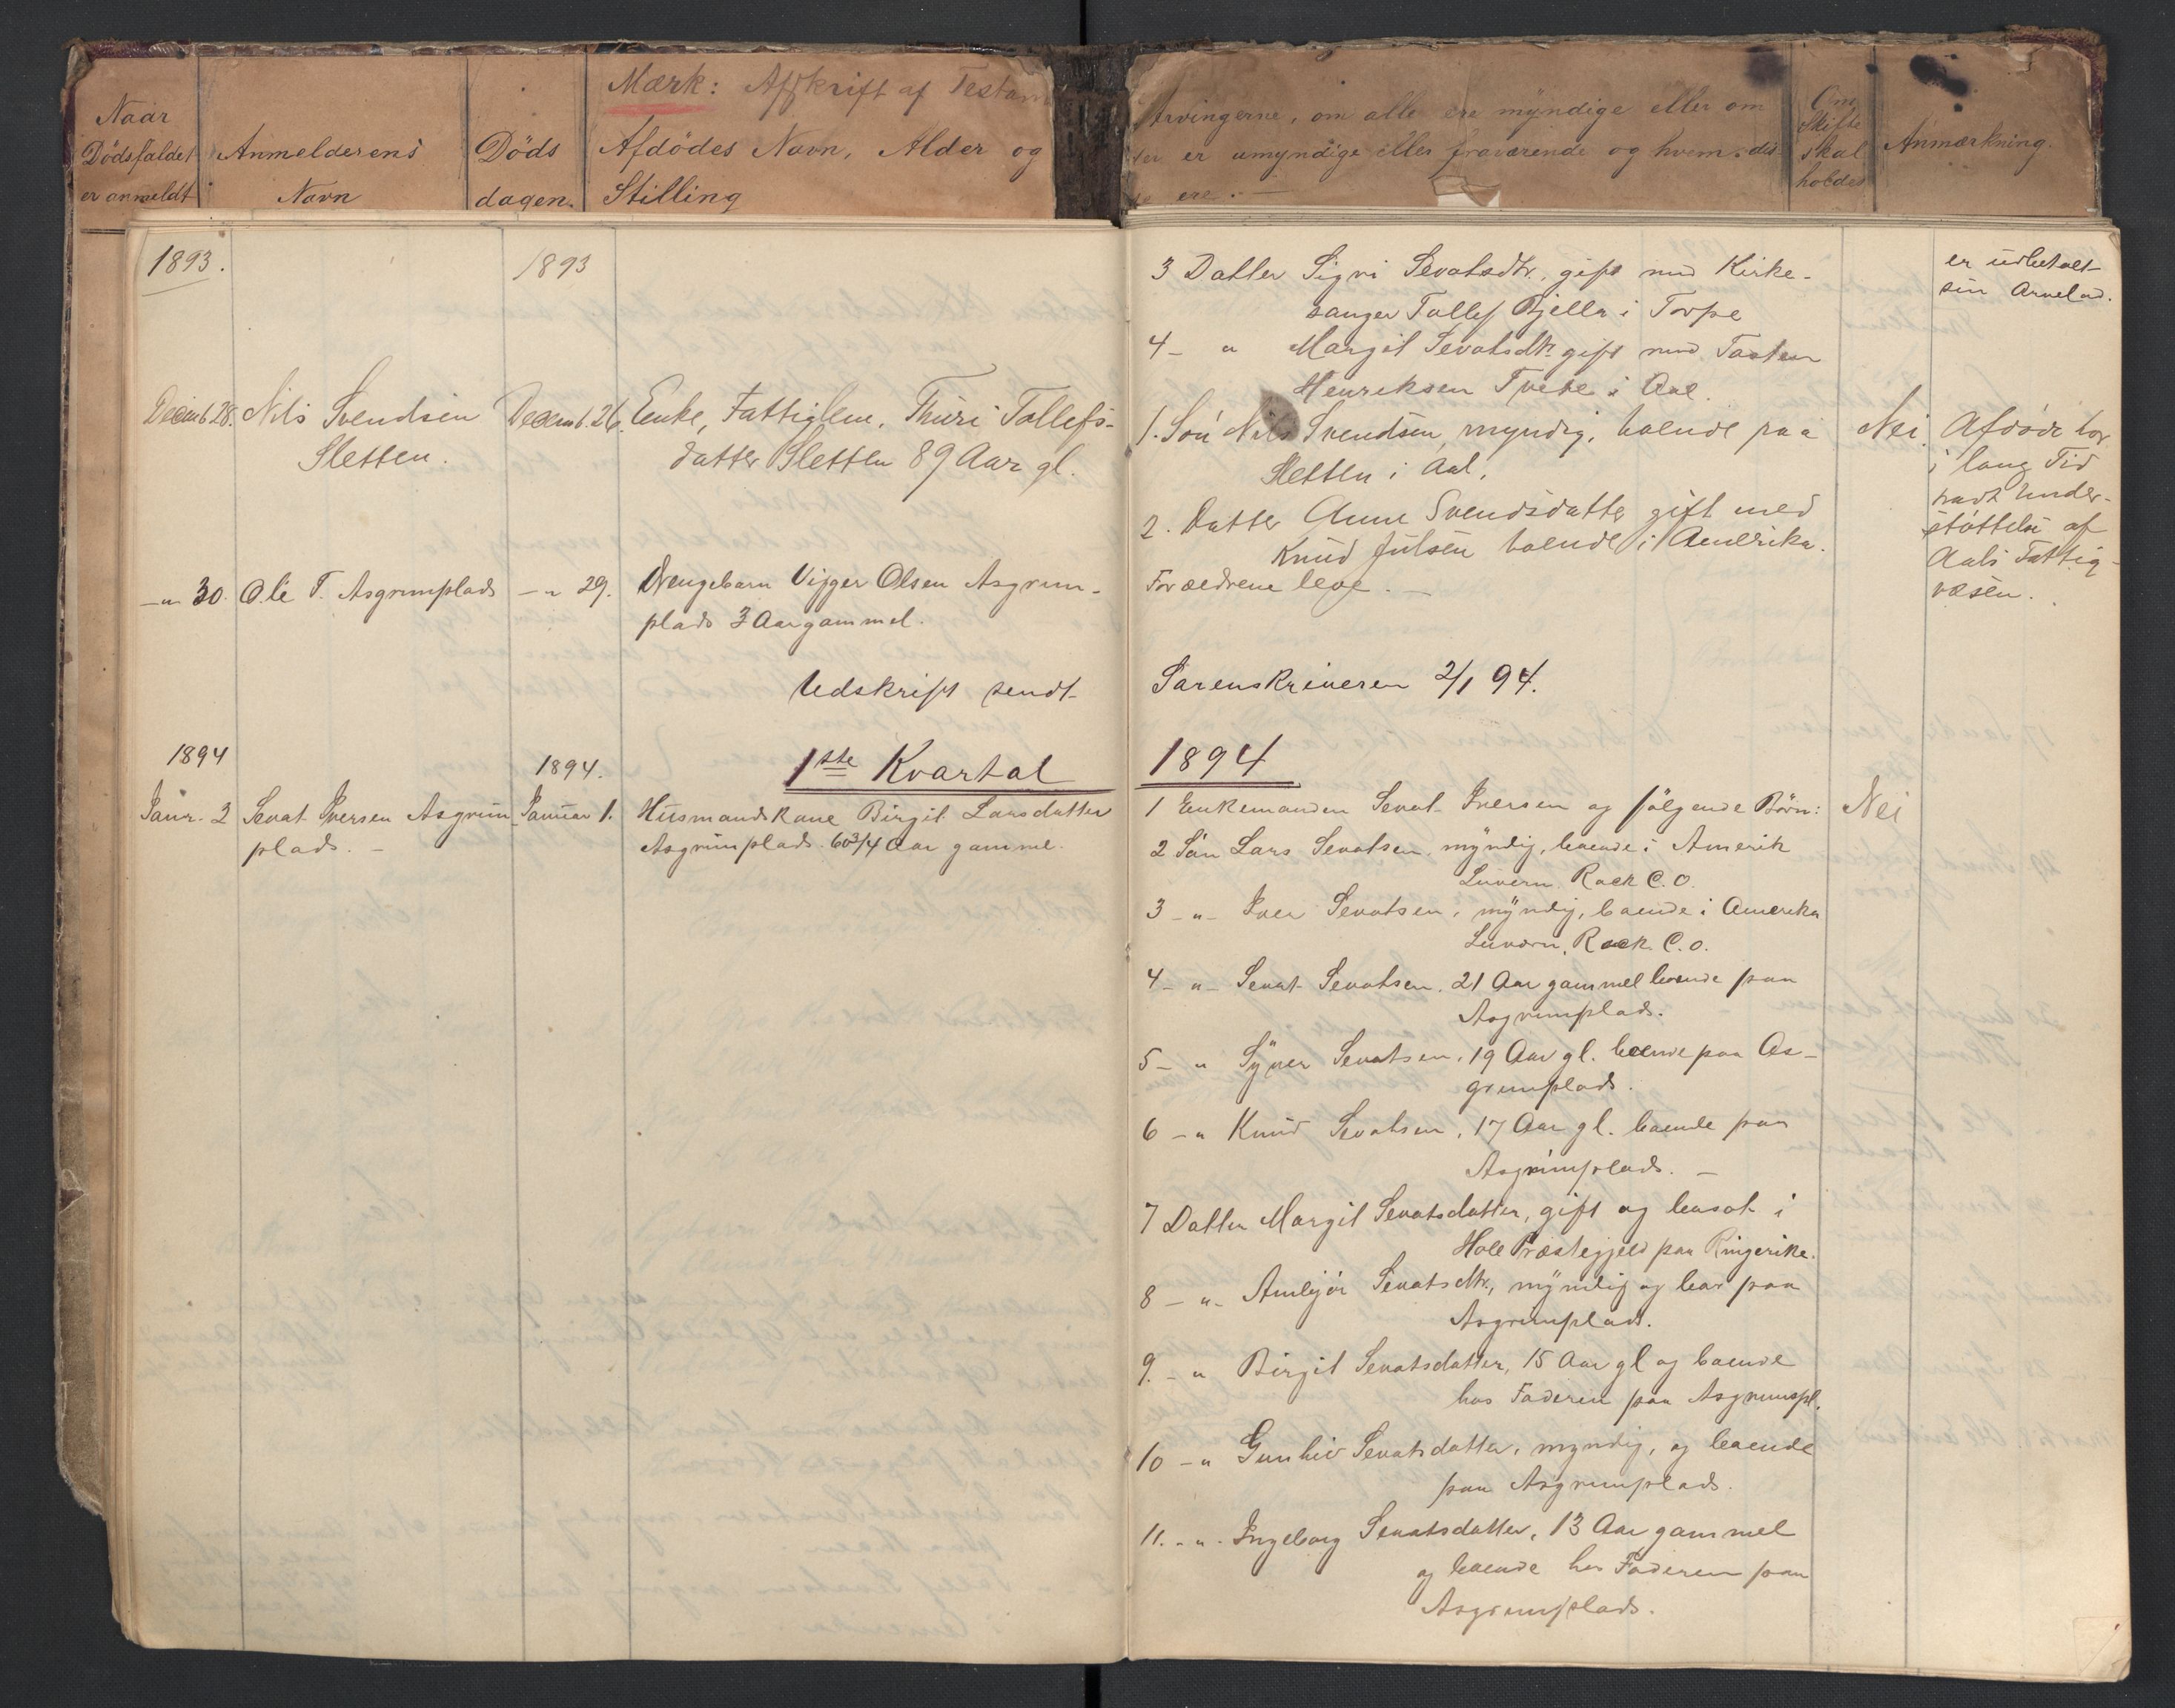 Mærk: Afskrift af Testam
Naar
Dödsfaldet
er anmeldt
Anmelderens
Navn
Döds
dagen.
Afdödes Navn, Alder og
Stilling
Arvingerne, om alle ere myndige eller om
er umyndige eller fraværende og hvem dis
ere.
Om
Skifte
skal
holdes
Anmærkning.
1893.
1893
3 Datter Sigri Sevatsdtr. gift med Kirke-
sanger Tollef Bjella i Torpe
er udbetalt
sin Arvelod.
4 - " Margit Sevatsdtr. gift med Tosten
Henriksen Tveto i Aal.
Decemb 28. Nils Svendsen
Sletten.
Decemb. 26.
Enke, Fattiglem, Thuri Tollefs-
datter Sletten 89 Aar gl.
1. Sön Nils Svendsen, myndig, boende paa
Sletten i Aal.
2. Datter Anne Svendsdatter gift med
Knud Julsen boende i Amerika.
Nei.
Afdöde har
i lang Tid
havt Under-
stöttelse af
Aals Fattig-
væsen.
- " 30. Ole T. Asgrimplads
- " 29.
Drengebarn Vigger Olsen Asgrim-
plads 3 Aar gammel.
Forældrene leve. -
Udskrift sendt Sorenskriveren 2/1 94.
1894
1894.
1ste Kvartal 1894
Janr. 2 Sevat Iversen Asgrim-
plads. -
Januar 1.
Husmandskone Birgit Larsdatter
Asgrimplads. 60 3/4 Aar gamme.
1 Enkemanden Sevat Iversen og fölgende Börn:
Nei
2 Sön Lars Sevatsen, myndig, boende i Amerik
Luvern, Rock C.O.
3 - " - Iver Sevatsen, myndig, boende i Amerika
Luvern, Rock. C.O.
4 - " - Sevat Sevatsen. 21 Aar gammel boende paa
Asgrimplads.
5 - " Syver Sevatsen, 19 Aar gl. boende paa As-
grimplads.
6 - " Knud Sevatsen, 17 Aar gl. boende paa
Asgrimplads. -
7 Datter Margit Sevatsdatter, gift og bosat i
Hole Præstegjeld paa Ringerike.
8 - " - Ambjör Sevatsdtr., myndig og boar paa
Asgrimplads.
9. - " Birgit Sevatsdatter, 15 Aar gl og boende
hos Faderen paa Asgrimspl.
10 - " Gunbiv Sevatsdatter, myndig, og boende
paa Asgrimplads.
11. - " - Ingeborg Sevatsdatter, 13 Aar gammel
og boende hos Faderen paa
Asgrimplads.